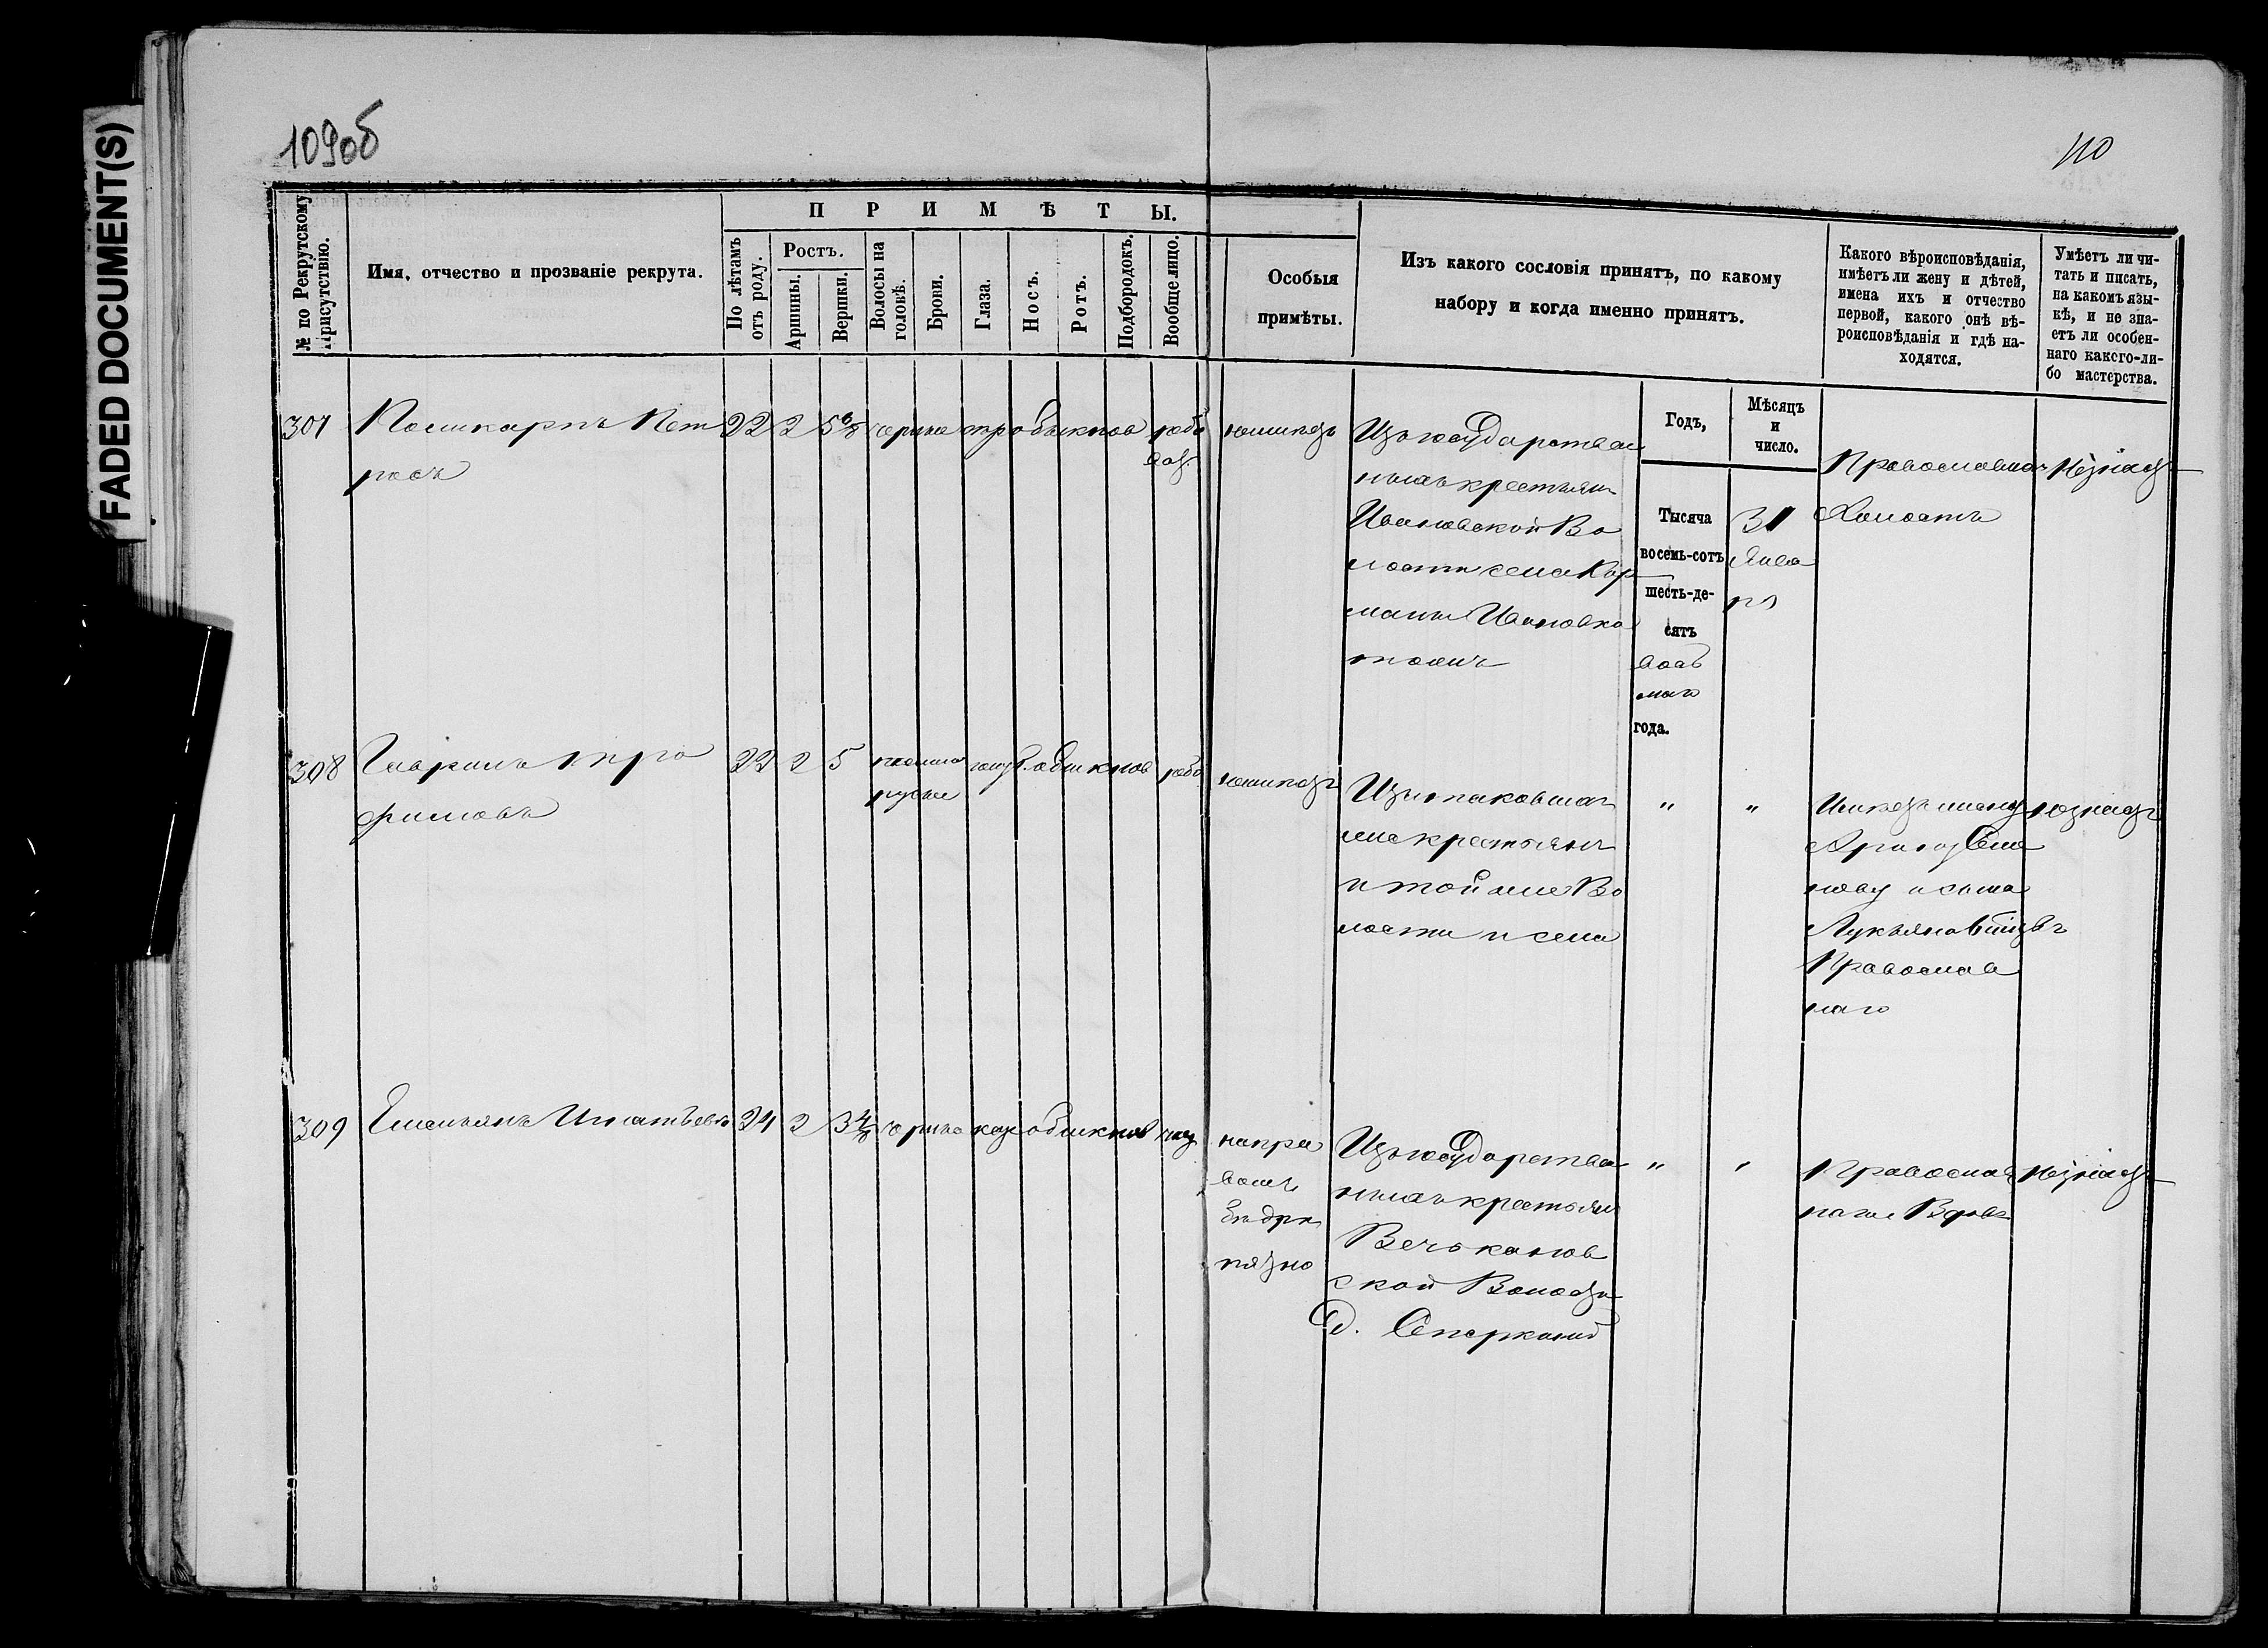 FADED DOCUMENT(S)
109об
110
№ по Рекрутскому Присутствію.
Имя, отчество и прозваніе рекрута.
ПРИМѢТЫ.
По лѣтамъ отъ роду.
Ростъ.
Аршины.
Вершки.
Волосы на головѣ.
Брови.
Глаза.
Носъ.
Ротъ.
Подбородокъ.
Вообще лицо.
Особыя
примѣты.
Изъ какого сословія принятъ, по какому
набору и когда именно принятъ.
Какого вѣроисповѣданія,
имѣетъ ли жену и дѣтей,
имена ихъ и отчество
первой, какого онѣ вѣ-
роисповѣданія и гдѣ на-
ходятся.
Умѣетъ ли чи-
тать и писать,
на какомъ язы-
кѣ, и не зна-
етъ ли особен-
наго какого-ли-
бо мастерства.
Годъ,
Мѣсяцъ
и
число.
307 Поликарпъ Пет 22 2 5 6/8 черные обыкнов рябо
ровъ
Изъ государствен
ныхъ крестьян
Ивановской Во
лости села Кар
малы Ивановка
тожъ
Тысяча
восемь-сотъ
шесть-де-
сятъ
вось
маго
года.
31
Янва
ря
Православнаго
Холостъ
незнаетъ
308 Гаврилъ Тро 22 2 5 темно голуб обыкнов рябо
фимовъ русые
Изъ таковыхъ
же крестьянъ
и той же Во
лости и села
" "
Имѣетъ жену
Ирину Семе
нову и сына
Лукьяна
Православ
наго
незнаетъ
309 Емельянъ Игнатьевъ 24 2 3 4/8 черные кар обыкнов чис
на пра
вомъ
бедрѣ
пятно
Изъ государствен
ныхъ крестьян
ской Волости
д.
" "
Православ
наго Вдовъ
незнаетъ